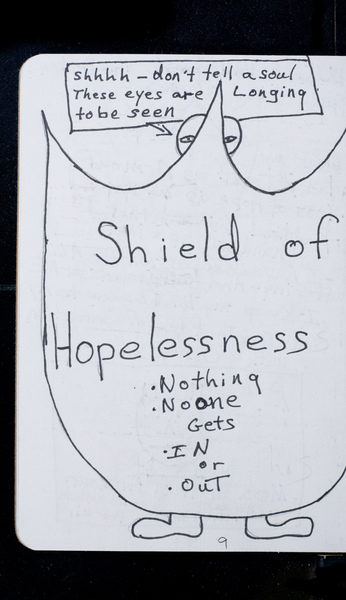 shhhh - don't tell a soul
These eyes are Longing
to be seen
Shield of
Hopelessness
• Nothing
• Noone
Gets
• IN
or
• OUT
9